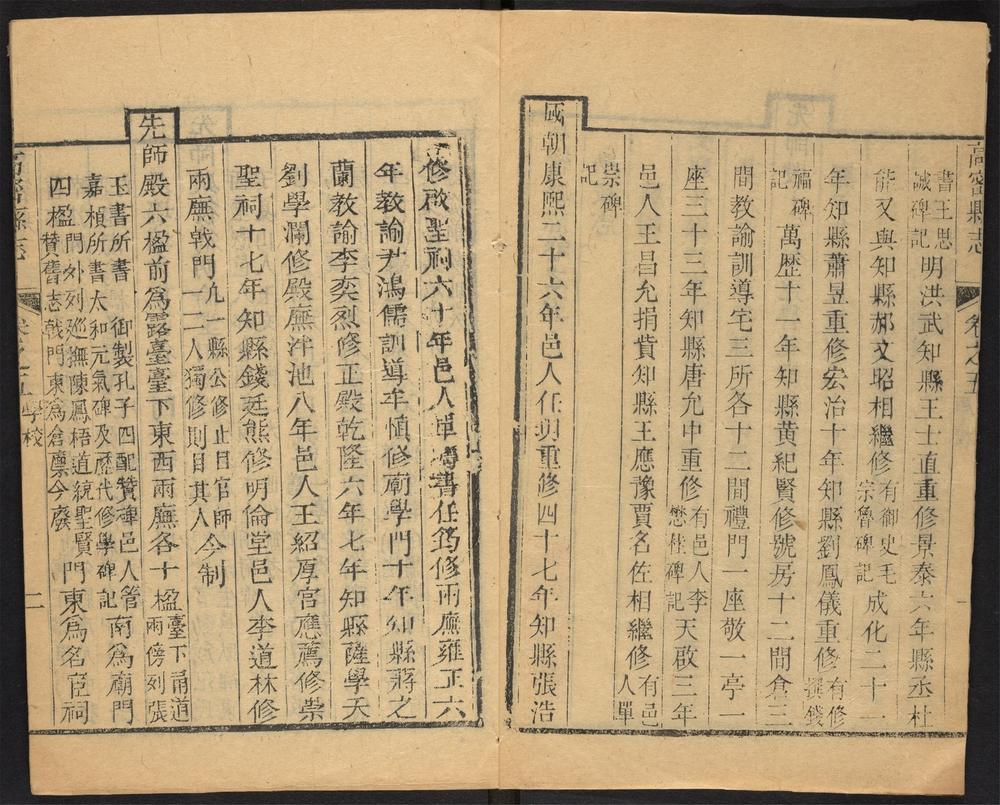 高密縣志
卷之五
書王思
誠碑記
明洪武知縣王士直重修景泰六年縣丞杜
能又與知縣郝文昭相繼修
有御史毛
宗魯碑記
成化二十一
年知縣蕭昱重修宏治十年知縣劉鳳儀重修
有修
撰錢
福碑
記
萬歷十一年知縣黃紀賢修號房十二間倉三
間教諭訓導宅三所各十二間禮門一座敬一亭一
座三十三年知縣唐允中重修
有邑人李
懋柱碑記
天啟三年
邑人王昌允捐貲知縣王應豫賈名佐相繼修
有邑
人單
崇碑
記
國朝康熙二十六年邑人任玥重修四十七年知縣張浩
修啟聖祠六十年邑人單疇書任筠修兩廡雍正六
年教諭尹鴻儒訓導牟慎修廟學門十年知縣蔣之
蘭教諭李奕烈修正殿乾隆六年七年知縣薩學天
劉學瀾修殿廡泮池八年邑人王紹厚宮應薦修崇
聖祠十七年知縣錢廷熊修明倫堂邑人李道林修
兩廡戟門
凡一縣公修止目官師
一二人獨修則目其人
今制
先師殿六楹前為露臺臺下東西兩廡各十楹
臺下甬道
兩傍列張
玉書所書 御製孔子四配贊碑邑人管
嘉楨所書太和元氣碑及歷代修學碑記
南為廟門
四楹
門外列巡撫陳鳳梧道統聖賢
贊舊志戟門東為倉廩今廢
門東為名宦祠
高密縣志
卷之五學校
二